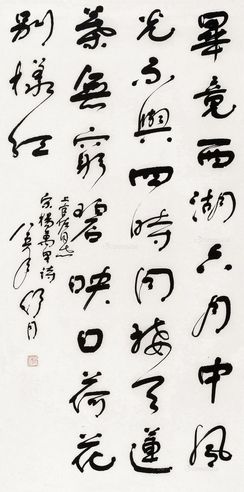 畢竟西湖六月中風
光不與四時同接天蓮
葉無窮碧映日荷花
別樣紅
同志
宋楊萬里詩
年 舒同